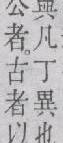 與凡丁異也
公者。古者以